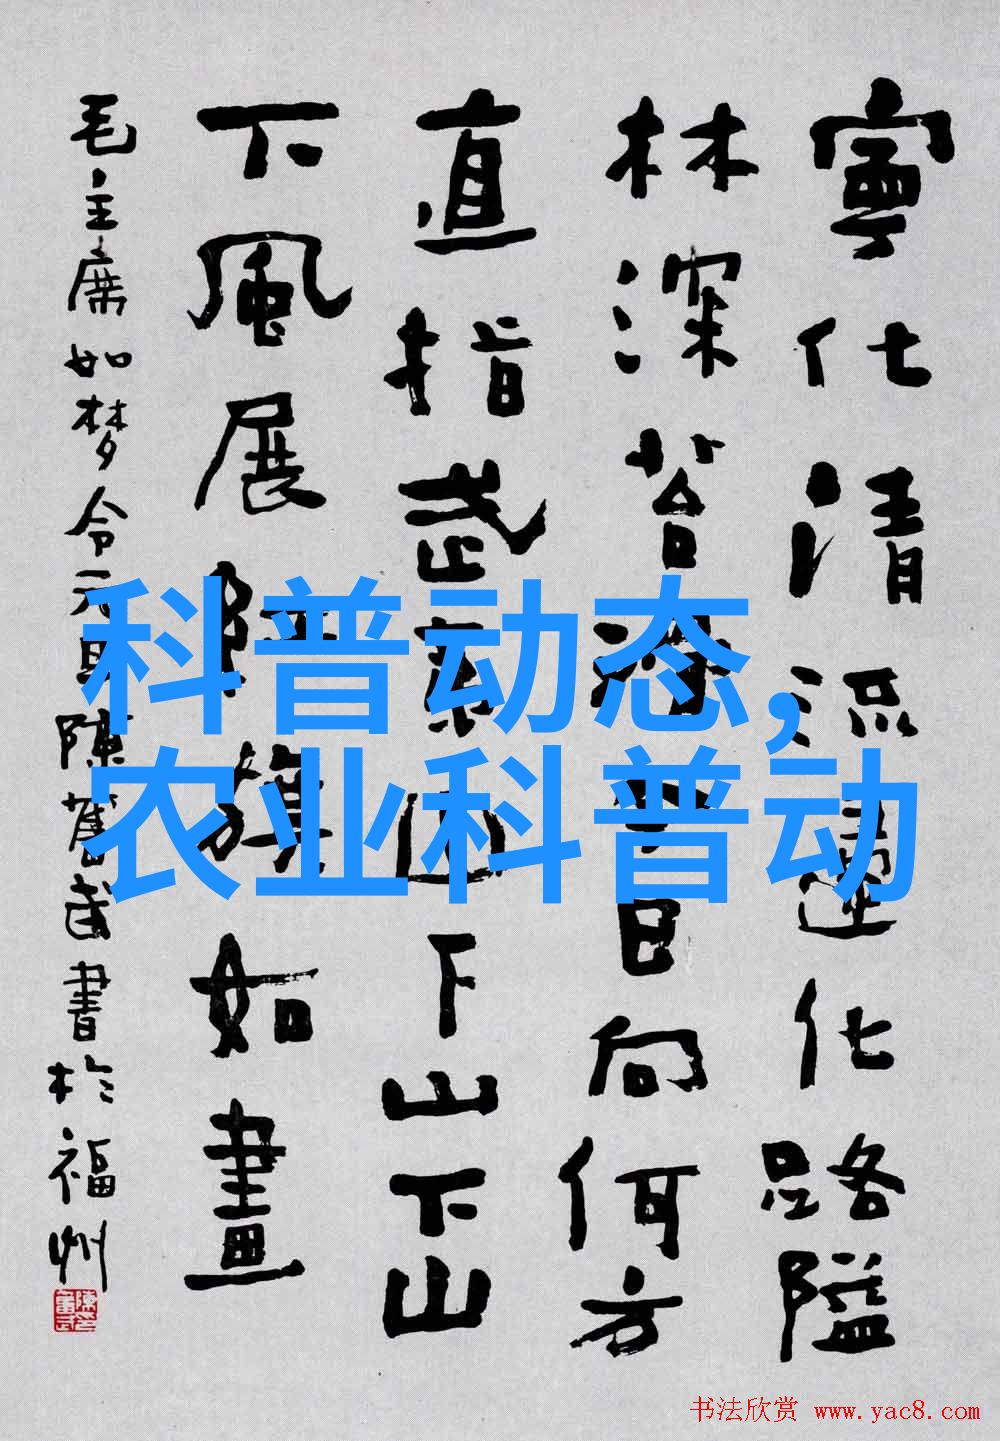 寧化清流化路隘
林深苔日向何方
直指武下山下山
下風展旗如畫
毛主席如梦令元旦陳奮武書於福州
科普动态,
农业科普动
书法欣赏 www.yac8.com